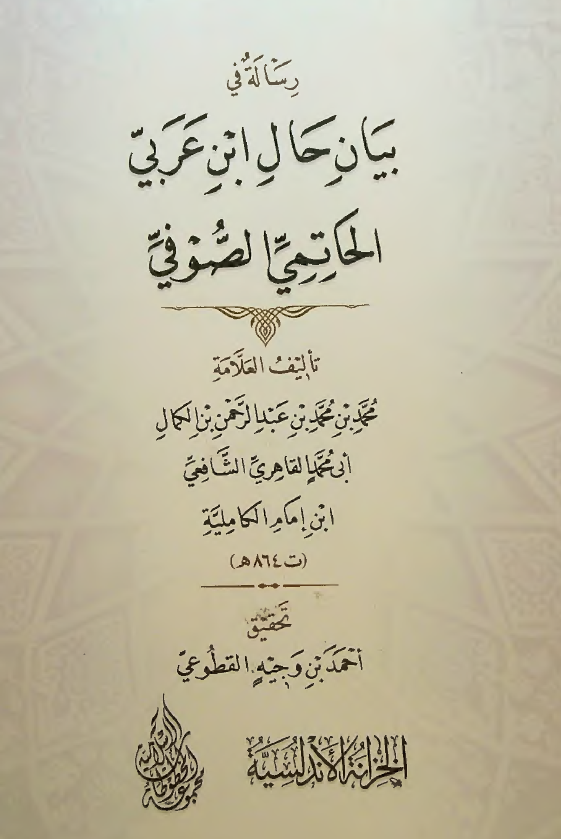 رِسَالَةٌ في
بَيَانِ حَالِ ابْنِ عَرَبِيّ
الحَاتِمِيِّ الصُّوْفِيِّ
تأليفُ العَلَّامَةِ
مُحَمَّدِ بْنِ مُحَمَّدِ بْنِ عَبْدِ الرَّحْمٰنِ بْنِ الكَمَالِ
أَبي مُحَمَّدٍ القَاهِرِيِّ الشَّافِعِيِّ
ابْنِ إِمَامِ الكَامِلِيَّةِ
(ت ٨٦٤هـ)
تَحْقِيْق
أَحْمَدَ بْنِ وَجِيْهٍ القَطُوعيّ
الخِزَانَةُ الأَنْدَلُسِيَّةُ
مجموعة المخطوطات الإسلامية